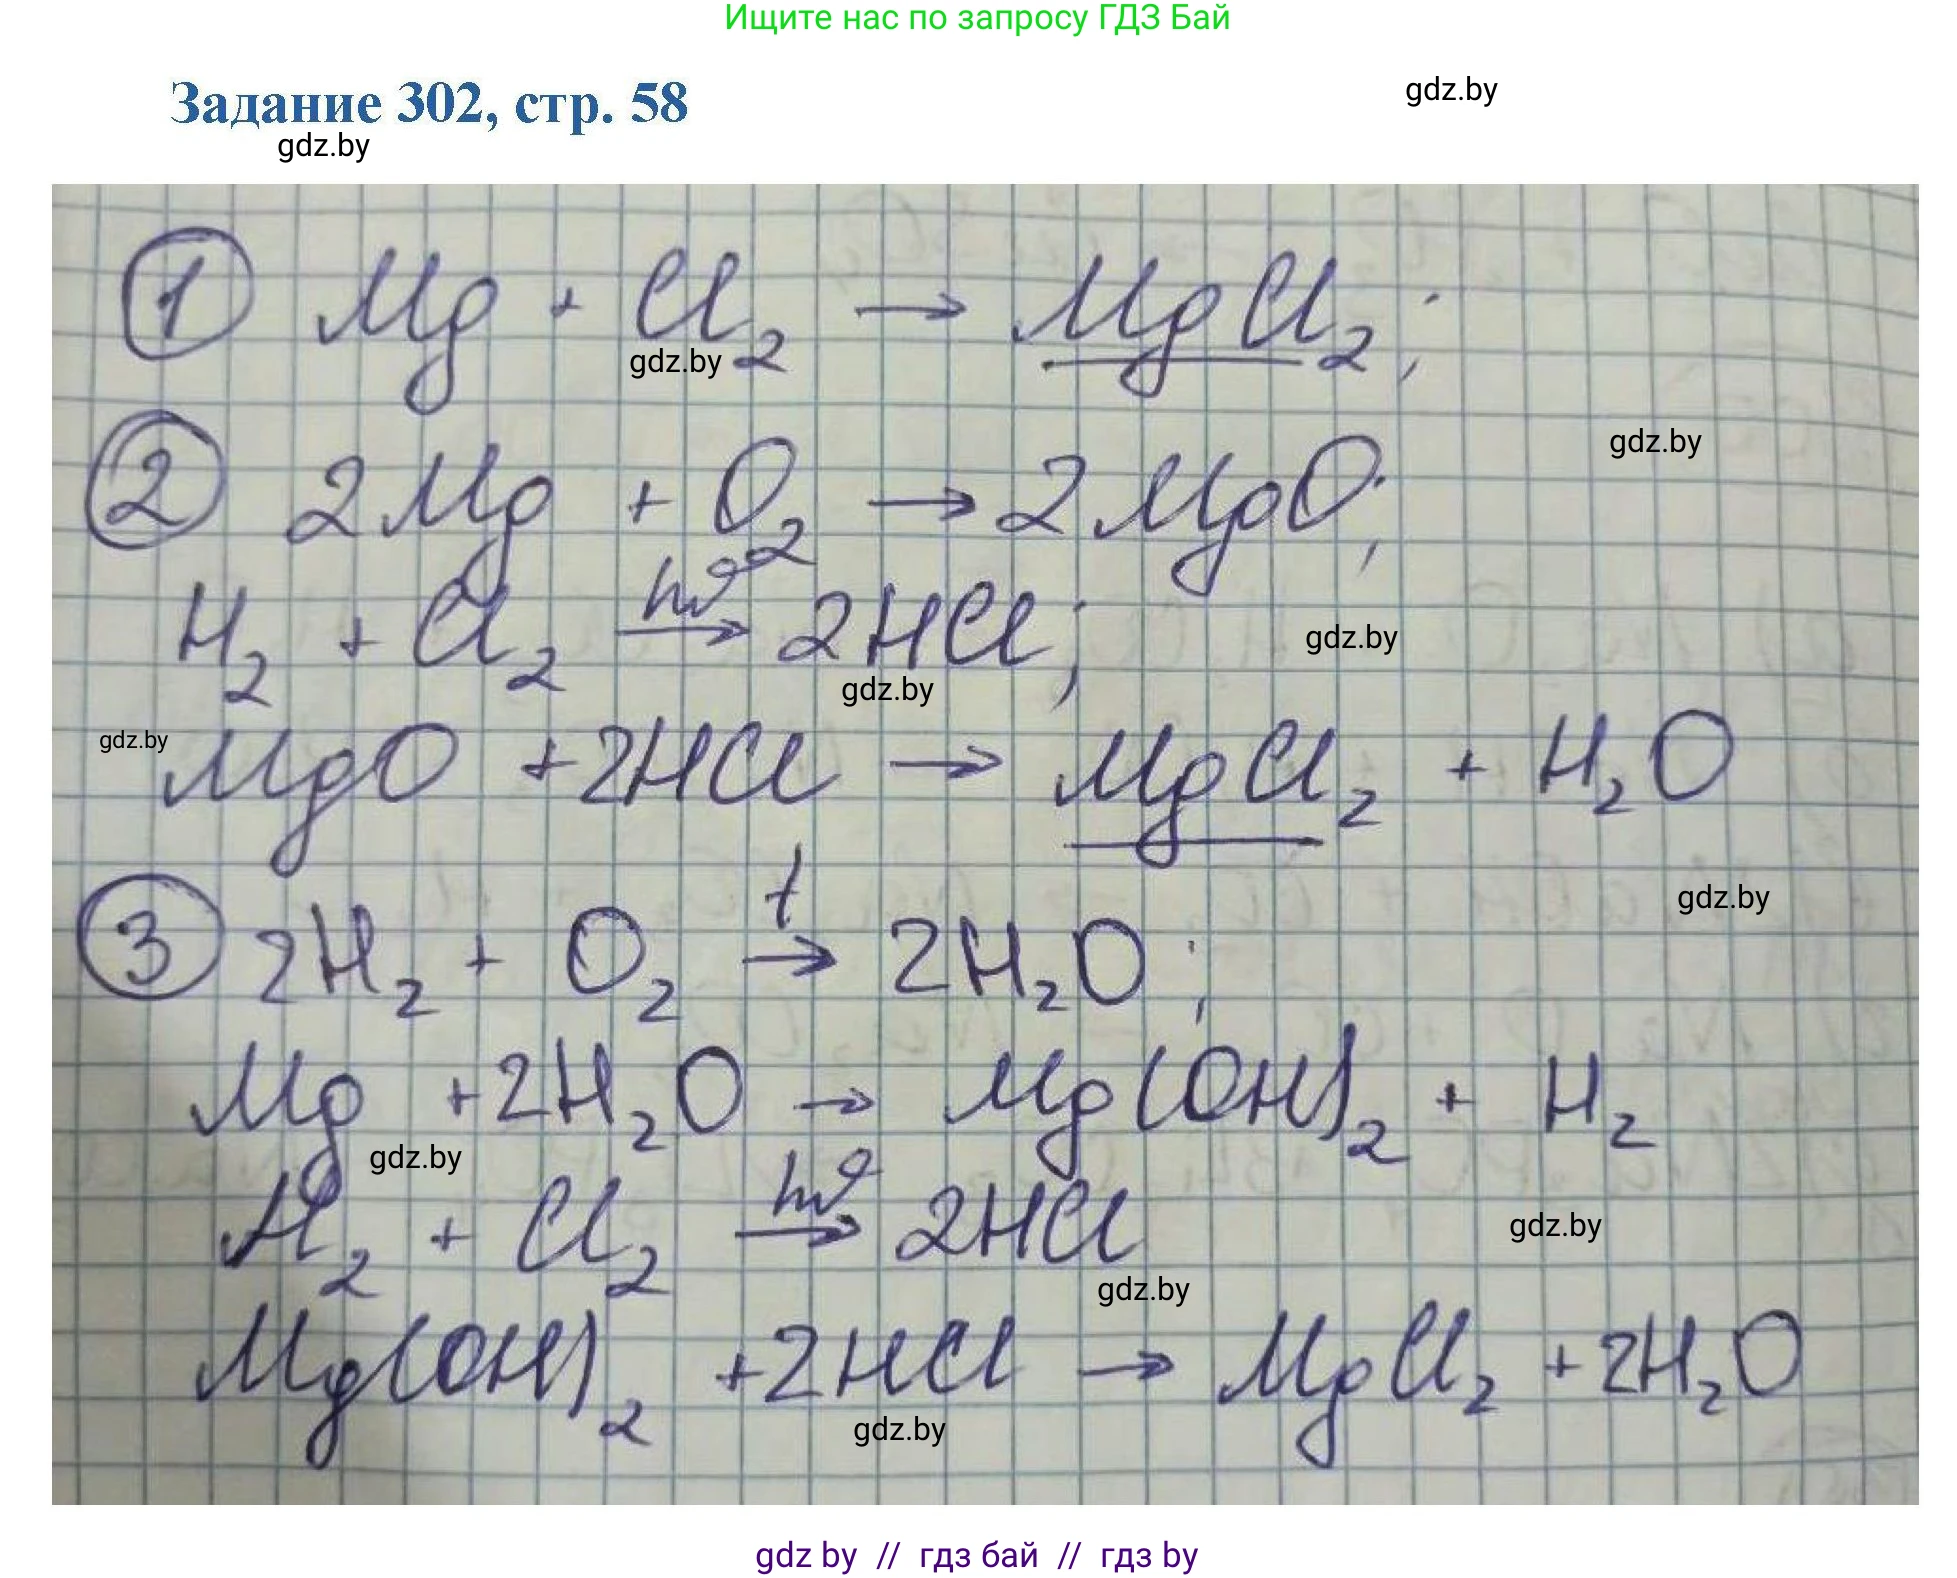 Ищите нас по запросу ГДЗ Бай
Задание 302, стр. 58
gdz.by
gdz.by
① Mg + Cl₂ → MgCl₂;
gdz.by
gdz.by
② 2Mg + O₂ → 2MgO;
H₂ + Cl₂ hν → 2HCl;
gdz.by
gdz.by
gdz.by
MgO + 2HCl → MgCl₂ + H₂O
gdz.by
③ 2H₂ + O₂ t → 2H₂O;
Mg + 2H₂O → Mg(OH)₂ + H₂
gdz.by
H₂ + Cl₂ hν → 2HCl
gdz.by
gdz.by
Mg(OH)₂ + 2HCl → MgCl₂ + 2H₂O
gdz.by
gdz by // гдз бай // гдз by